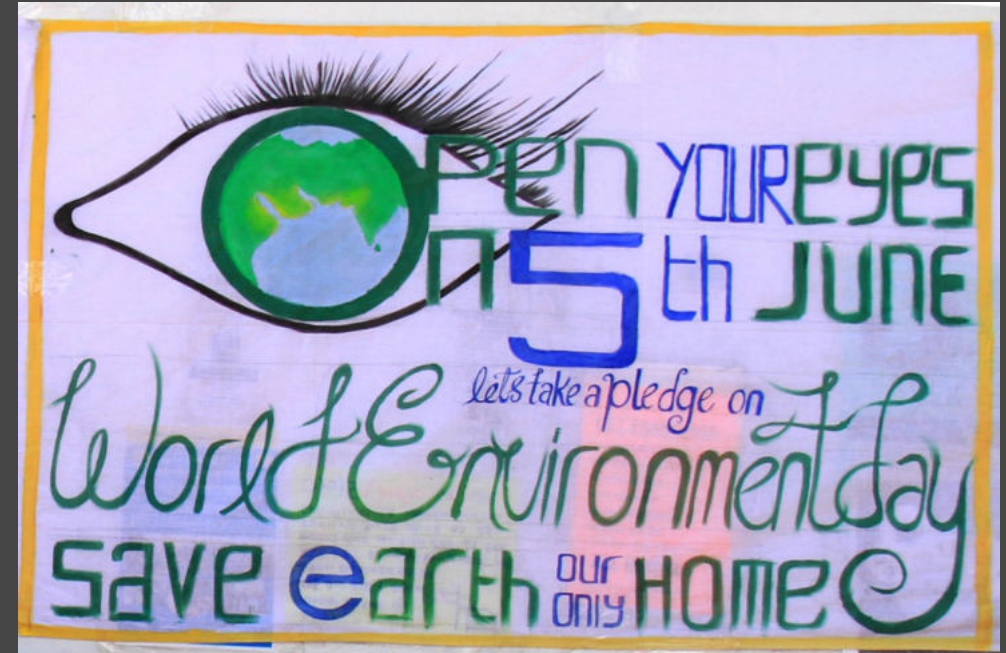 Open YOUR eyes
On 5th JUNE
let's take a pledge on
World Environment day
save earth our only HOME